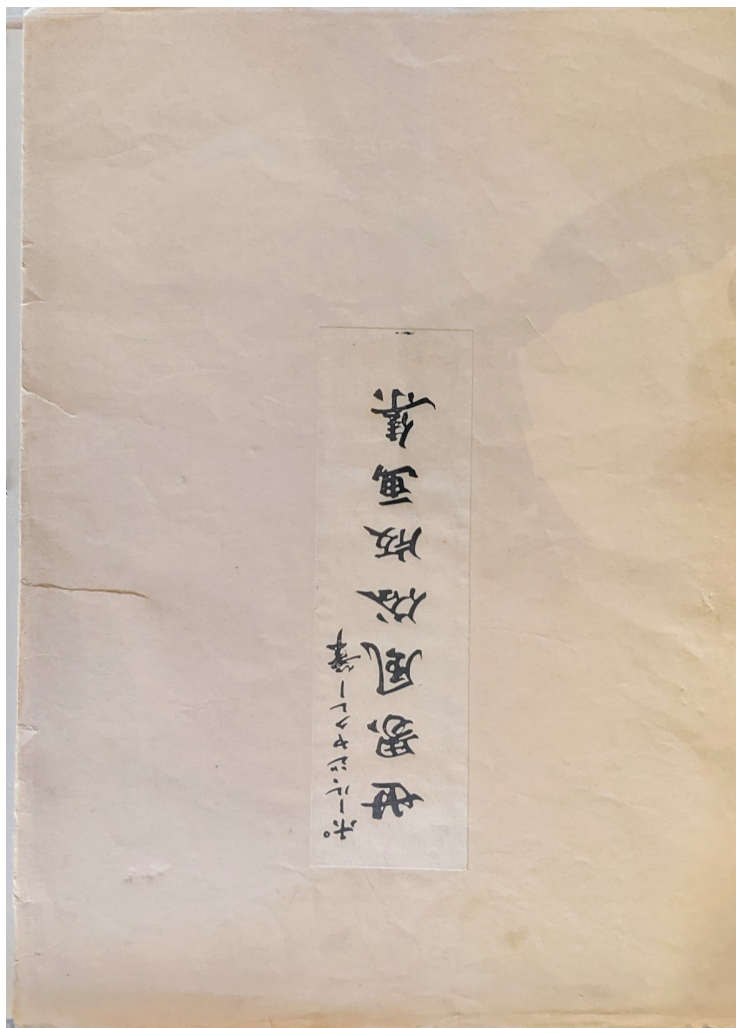 ポール、ジヤクレー筆
世界風俗版画集